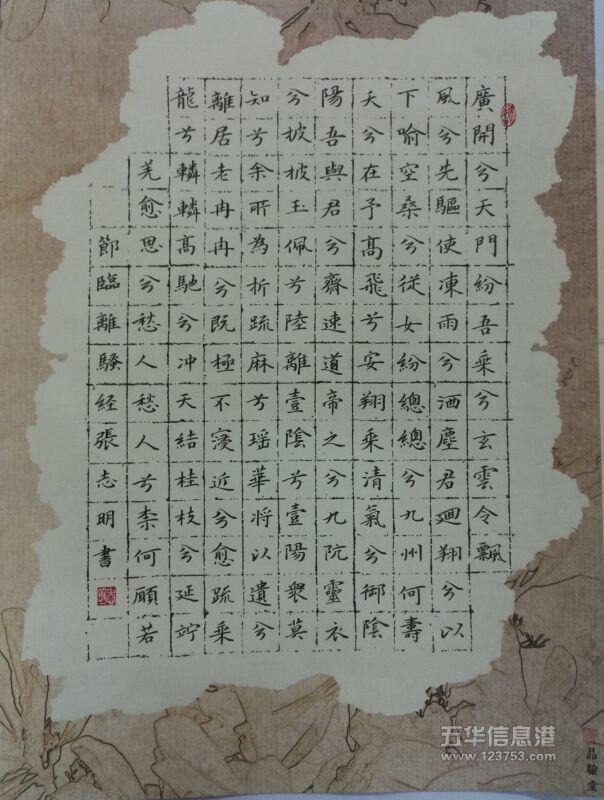 廣開兮天門紛吾乘兮玄雲令飄
風兮先驅使凍雨兮洒塵君迴翔兮以
下喻空桑兮從女紛總總兮九州何壽
夭兮在予高飛兮安翔乘清氣兮御陰
陽吾與君兮齋速道帝之兮九阬靈衣
兮披披玉佩兮陸離壹陰兮壹陽衆莫
知兮余所為折疏麻兮瑶華將以遺兮
離居老冉冉兮既極不寖近兮愈疏乘
龍兮轔轔高馳兮冲天結桂枝兮延竚
羌愈思兮愁人愁人兮柰何願若
節臨離騷經張志明書
品翰堂
五华信息港
www.123753.com